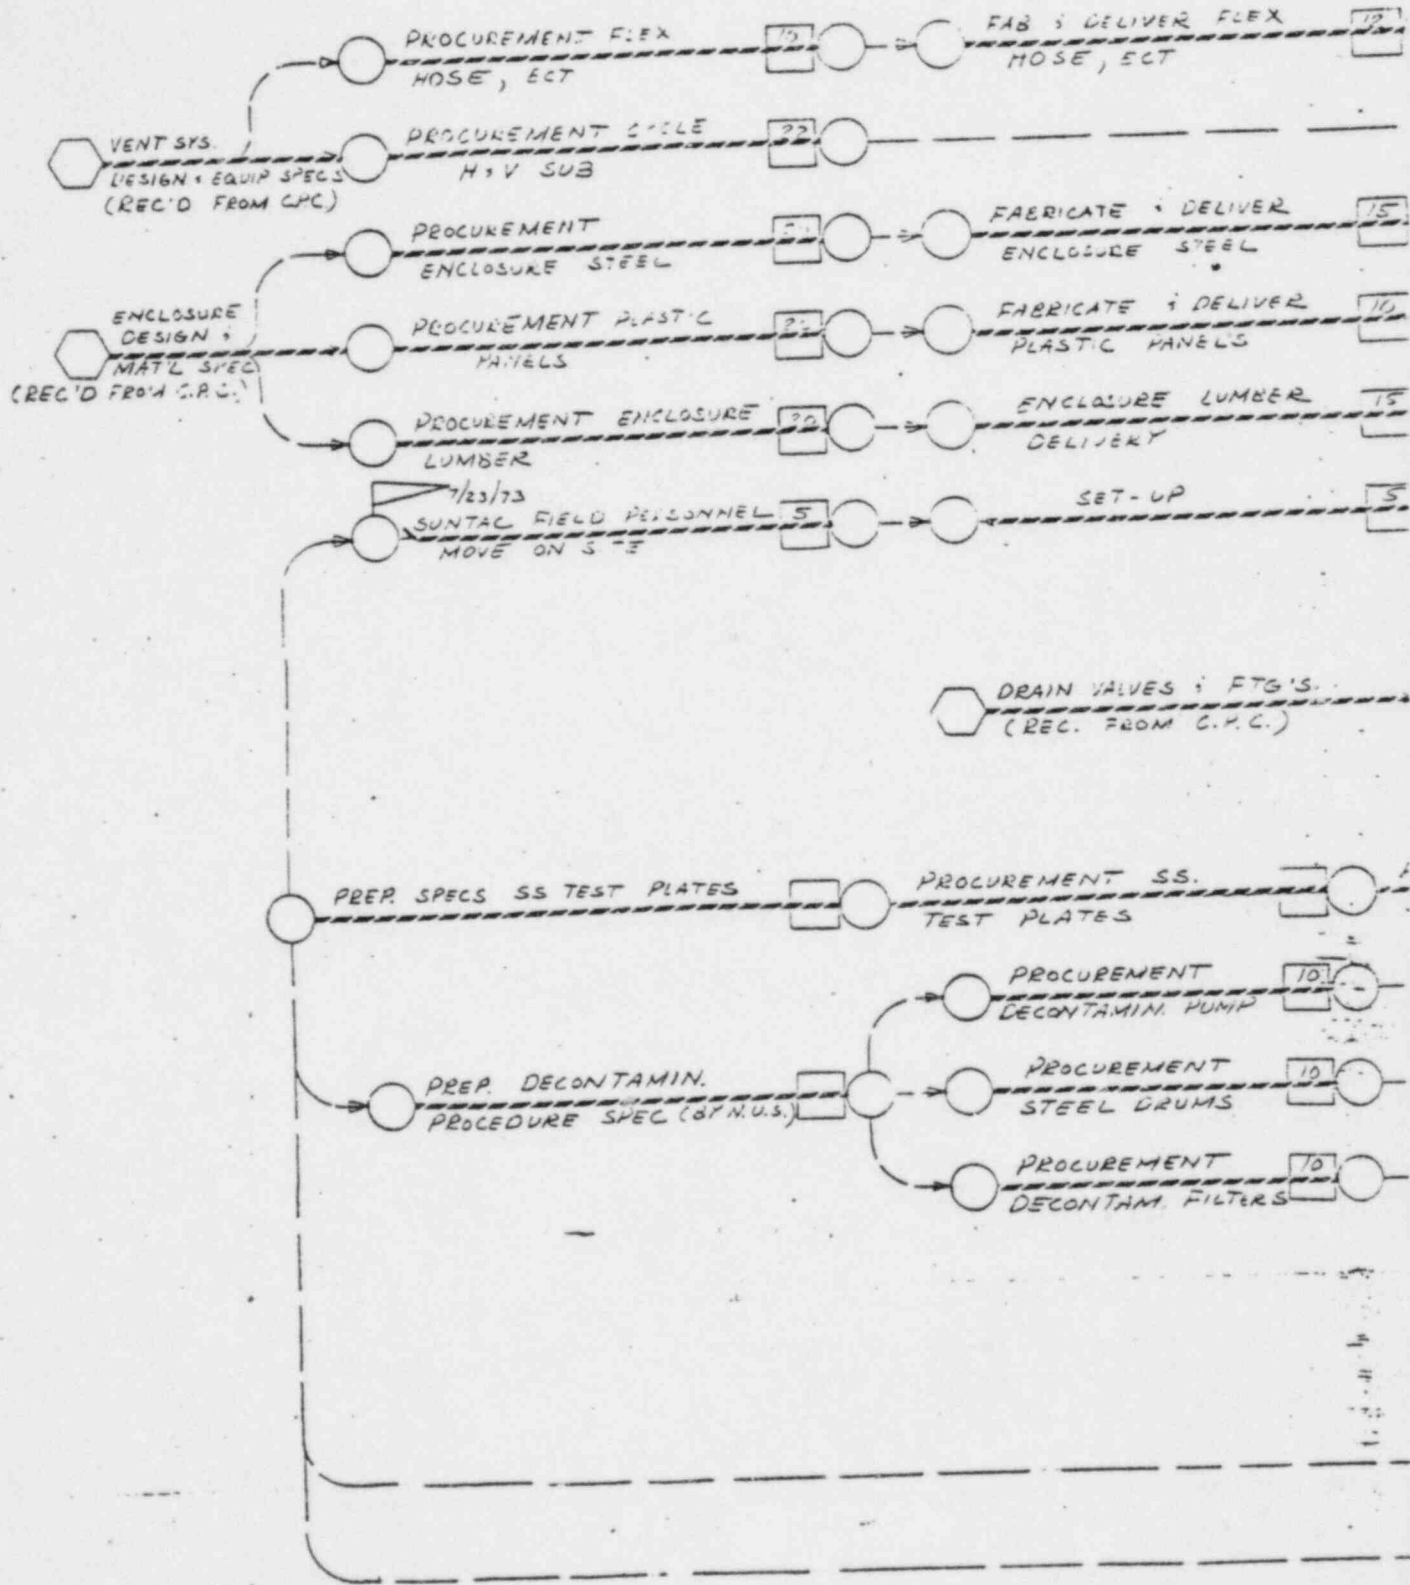 PROCUREMENT FLEX
HOSE, ECT
10
FAB & DELIVER FLEX
HOSE, ECT
VENT SYS.
DESIGN & EQUIP SPECS
(REC'D FROM CPC)
PROCUREMENT CYCLE
H & V SUB
22
PROCUREMENT
ENCLOSURE STEEL
FABRICATE & DELIVER
ENCLOSURE STEEL
15
ENCLOSURE
DESIGN &
MAT'L SPEC
(REC'D FROM C.P.C.)
PROCUREMENT PLASTIC
PANELS
FABRICATE & DELIVER
PLASTIC PANEL'S
10
PROCUREMENT ENCLOSURE
LUMBER
20
ENCLOSURE LUMBER
DELIVERY
15
7/23/73
SUNTAC FIELD PERSONNEL
MOVE ON SITE
5
SET-UP
5
DRAIN VALVES & FTG'S.
(REC. FROM C.P.C.)
PREP. SPECS SS TEST PLATES
PROCUREMENT SS.
TEST PLATES
PROCUREMENT
DECONTAMIN. PUMP
10
PREP. DECONTAMIN.
PROCEDURE SPEC (BY N.U.S.)
PROCUREMENT
STEEL DRUMS
10
PROCUREMENT
DECONTAM. FILTERS
10